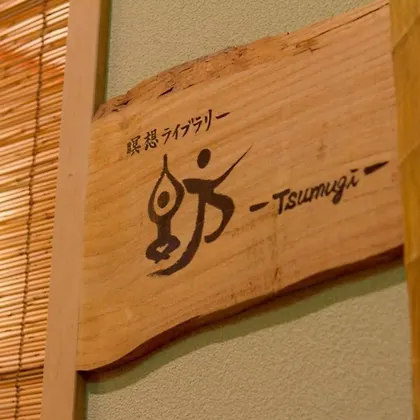 瞑想ライブラリー
紡
-Tsumugi-